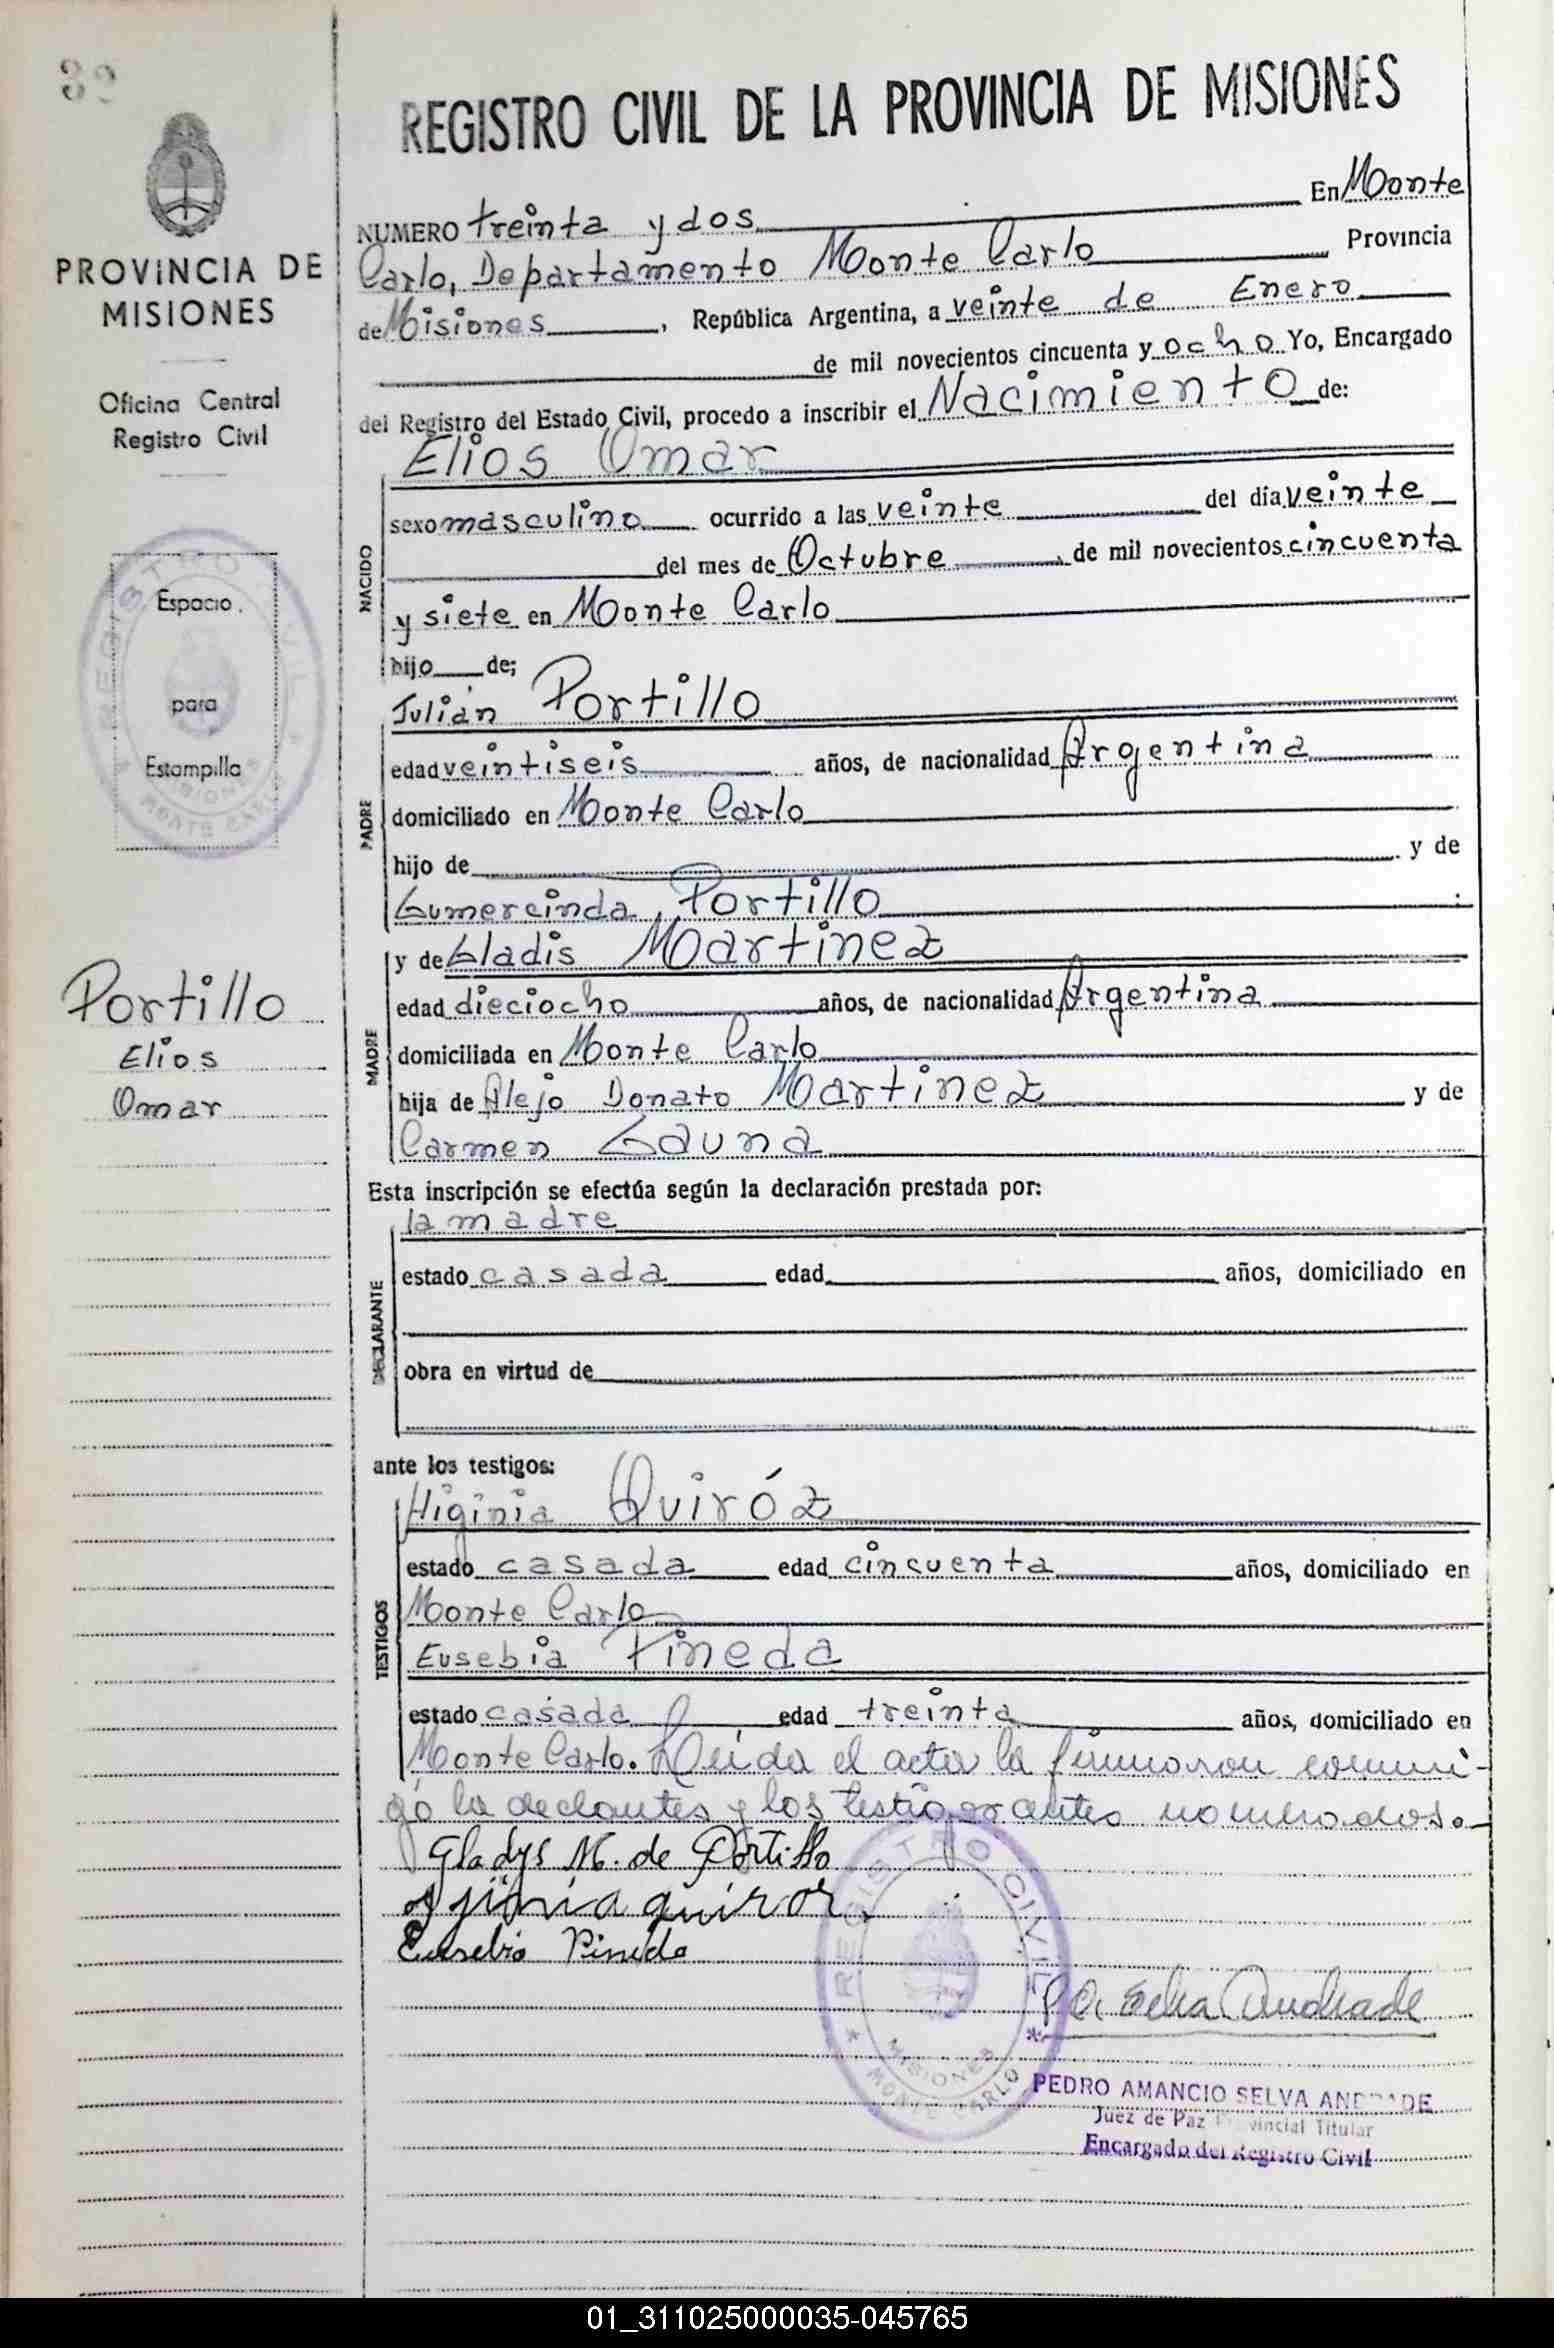 32
REGISTRO CIVIL DE LA PROVINCIA DE MISIONES
NUMERO treinta y dos En Monte
Carlo, Departamento Monte Carlo Provincia
de Misiones, República Argentina, a veinte de Enero
de mil novecientos cincuenta y ocho Yo, Encargado
del Registro del Estado Civil, procedo a inscribir el Nacimiento de:
Elios Omar
sexo masculino ocurrido a las veinte del día veinte
del mes de Octubre, de mil novecientos cincuenta
y siete en Monte Carlo
hijo de;
Julián Portillo
edad veintiseis años, de nacionalidad Argentina
domiciliado en Monte Carlo
hijo de y de
Gumercinda Portillo
y de Gladis Martinez
edad dieciocho años, de nacionalidad Argentina
domiciliada en Monte Carlo
hija de Alejo Donato Martinez y de
Carmen Gauna
Esta inscripción se efectúa según la declaración prestada por:
la madre
estado casada edad años, domiciliado en
obra en virtud de
ante los testigos:
Higinia Quiróz
estado casada edad cincuenta años, domiciliado en
Monte Carlo
Eusebia Pineda
estado casada edad treinta años, domiciliado en
Monte Carlo. Leida el acta la firmaron conmi-
go la declantes y los testigos antes nombrados.
Gladys M. de Portillo
quiroz
Eusebia Pineda
Andrade
PEDRO AMANCIO SELVA ANDRADE
Juez de Paz Provincial Titular
Encargado del Registro Civil
REGISTRO CIVIL
MISIONES
MONTE CARLO
NACIDO
PADRE
MADRE
DECLARANTE
TESTIGOS
PROVINCIA DE
MISIONES
Oficina Central
Registro Civil
Espacio
para
Estampilla
REGISTRO CIVIL
MISIONES
MONTE CARLO
Portillo
Elios
Omar
01_311025000035-045765